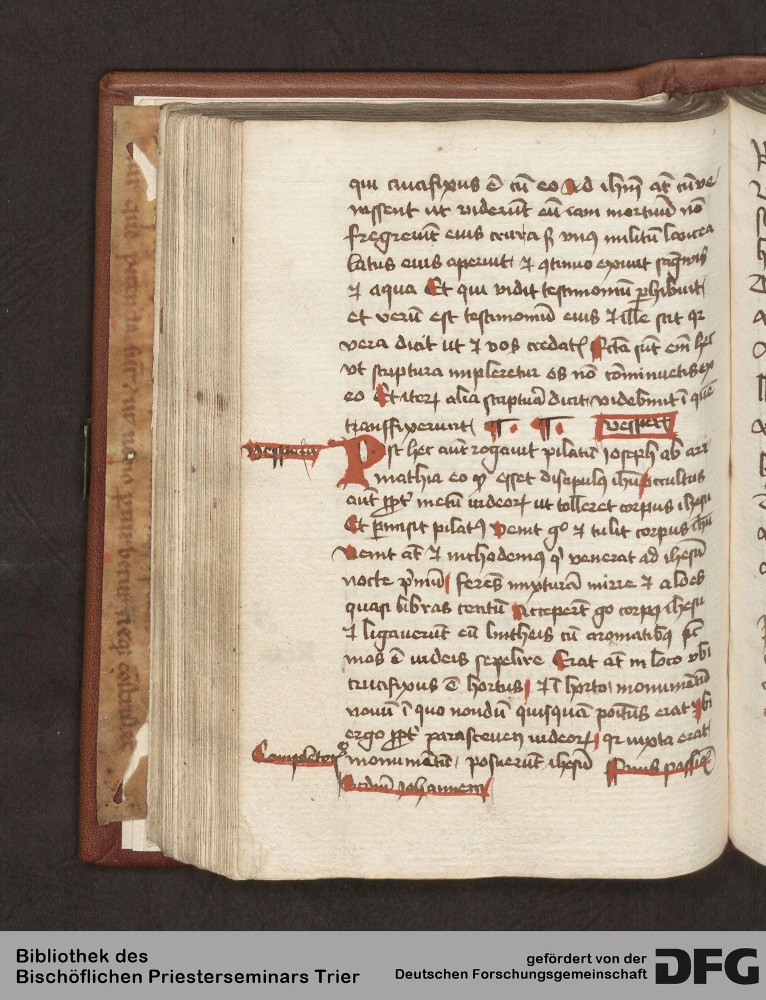 qui crucifixus ē cū eo Ad ihm̄ at̄ cū ve
nissent ut viderūt eū iam mortuū nō
fregerūt eius crura sꝫ vnꝰ militū lancea
latus eius aperuit et ꝯtinuo exiuit sāgwis
et aqua Et qui vidit testimoniū ꝑhibuit
et verū est testimoniū eius et ille scit qꝛ
vera dicit ut et vos credatꝭ Fc̄ta sūt em̄ hec
vt scriptura impleretur os nō cōminuetis ex
eo Et iteꝝ alia scriptura dicit videbūt ī quē
transfixerunt
vesperꝭ
Post hec aūt rogauit pilatū ioseph ab ari
mathia eo ꝙ esset discipulꝰ ihū occultus
aūt ꝓpt̄ metū iudeoꝝ ut tolleret corpus ihesu
Et ꝑmisit pilatꝰ venit gͦ et tulit corpus ihū
Venit at̄ et nichodemꝰ qͥ venerat ad ihesū
nocte pͥmū ferēs mixturā mirre et aloes
quasi libras centū Acceperūt gͦ corpꝰ ihesu
et ligaverūt eū lintheis cū aromatibꝰ sic̄
mos ē iudeis sepelire Erat at̄ in loco vbi
crucifixus ē hortus et ī horto monumētū
nouū ī quo nondū quisquā positus erat ibi
ergo ꝓpt̄ parasceuen iudeoꝝ qꝛ iuxta erat
Completoꝝ
monumētū posuerūt ihesū Finis passio
scdm̄ Johannem
Bibliothek des
Bischöflichen Priesterseminars Trier
gefördert von der
Deutschen Forschungsgemeinschaft
DFG